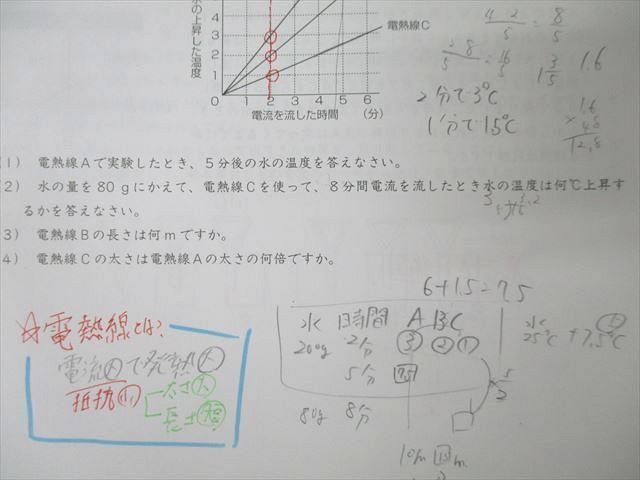 水の上昇した温度
4
3
2
1
0
0 1 2 3 4 5 6
電流を流した時間 (分)
電熱線C
2分で3℃
1分で1.5℃
1.6
1) 電熱線Aで実験したとき、5分後の水の温度を答えなさい。
2) 水の量を80gにかえて、電熱線Cを使って、8分間電流を流したとき水の温度は何℃上昇す
るかを答えなさい。
3) 電熱線Bの長さは何mですか。
4) 電熱線Cの太さは電熱線Aの太さの何倍ですか。
6+1.5=7.5
☆電熱線とは?
電流大で発熱大
抵抗小
太さ大
長さ短
水 時間 A B C
200g 2分 3 2 1
5分 7.5
80g 8分
水 25℃ +7.5℃
10m 15m